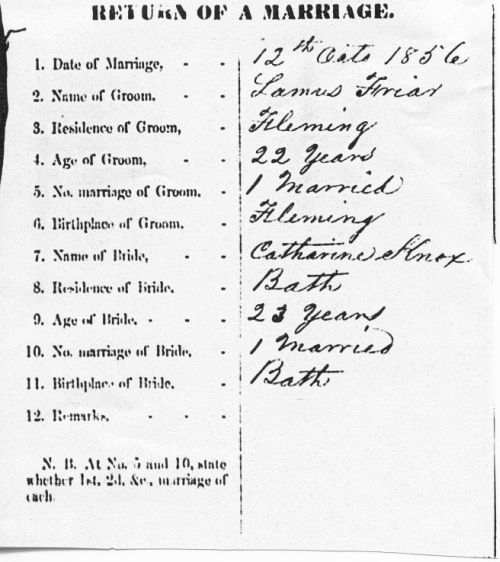 RETURN OF A MARRIAGE.
1. Date of Marriage, - - 12th Octo 1856
2. Name of Groom. - - Lamus Friar
3. Residence of Groom, - Fleming
4. Age of Groom, - - 22 Years
5. No. marriage of Groom. - 1 Married
6. Birthplace of Groom. - Fleming
7. Name of Bride, - - Catharine Knox
8. Residence of Bride. - Bath
9. Age of Bride. - - - 23 Years
10. No. marriage of Bride, - 1 Married
11. Birthplace of Bride. - Bath
12. Remarks. - - -
N. B. At No. 5 and 10, state
whether 1st, 2d, &c., marriage of
each.